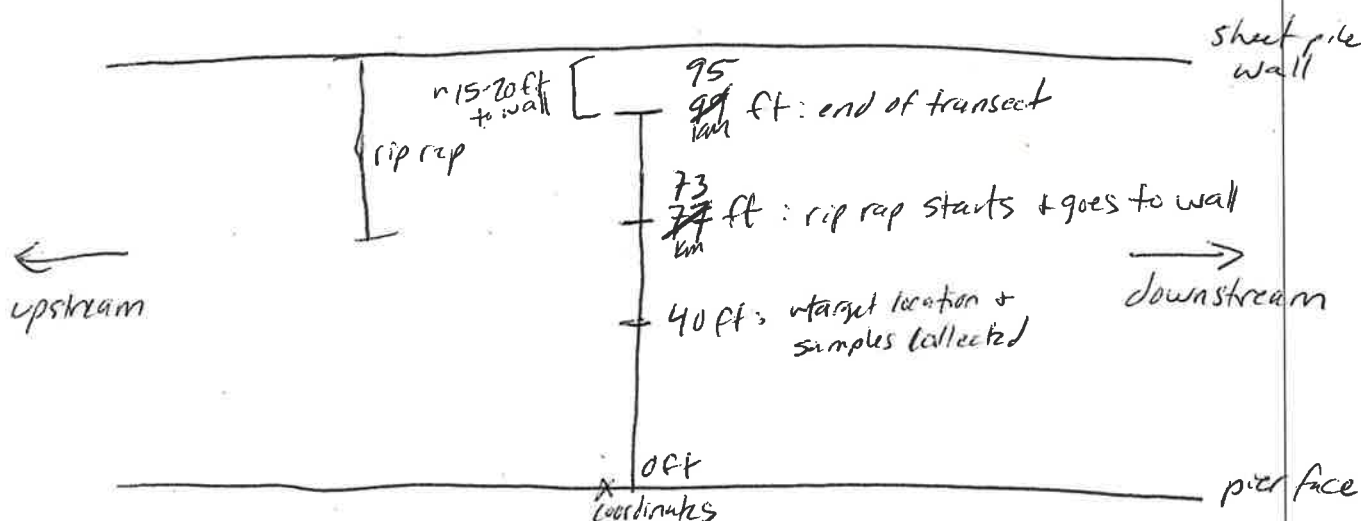 sheet pile
wall
~15-20ft
to wall
95
99 ft: end of transect
rip rap
73
77 ft: rip rap starts & goes to wall
km
upstream
downstream
40 ft: target location &
samples collected
0ft
X
coordinates
pier face